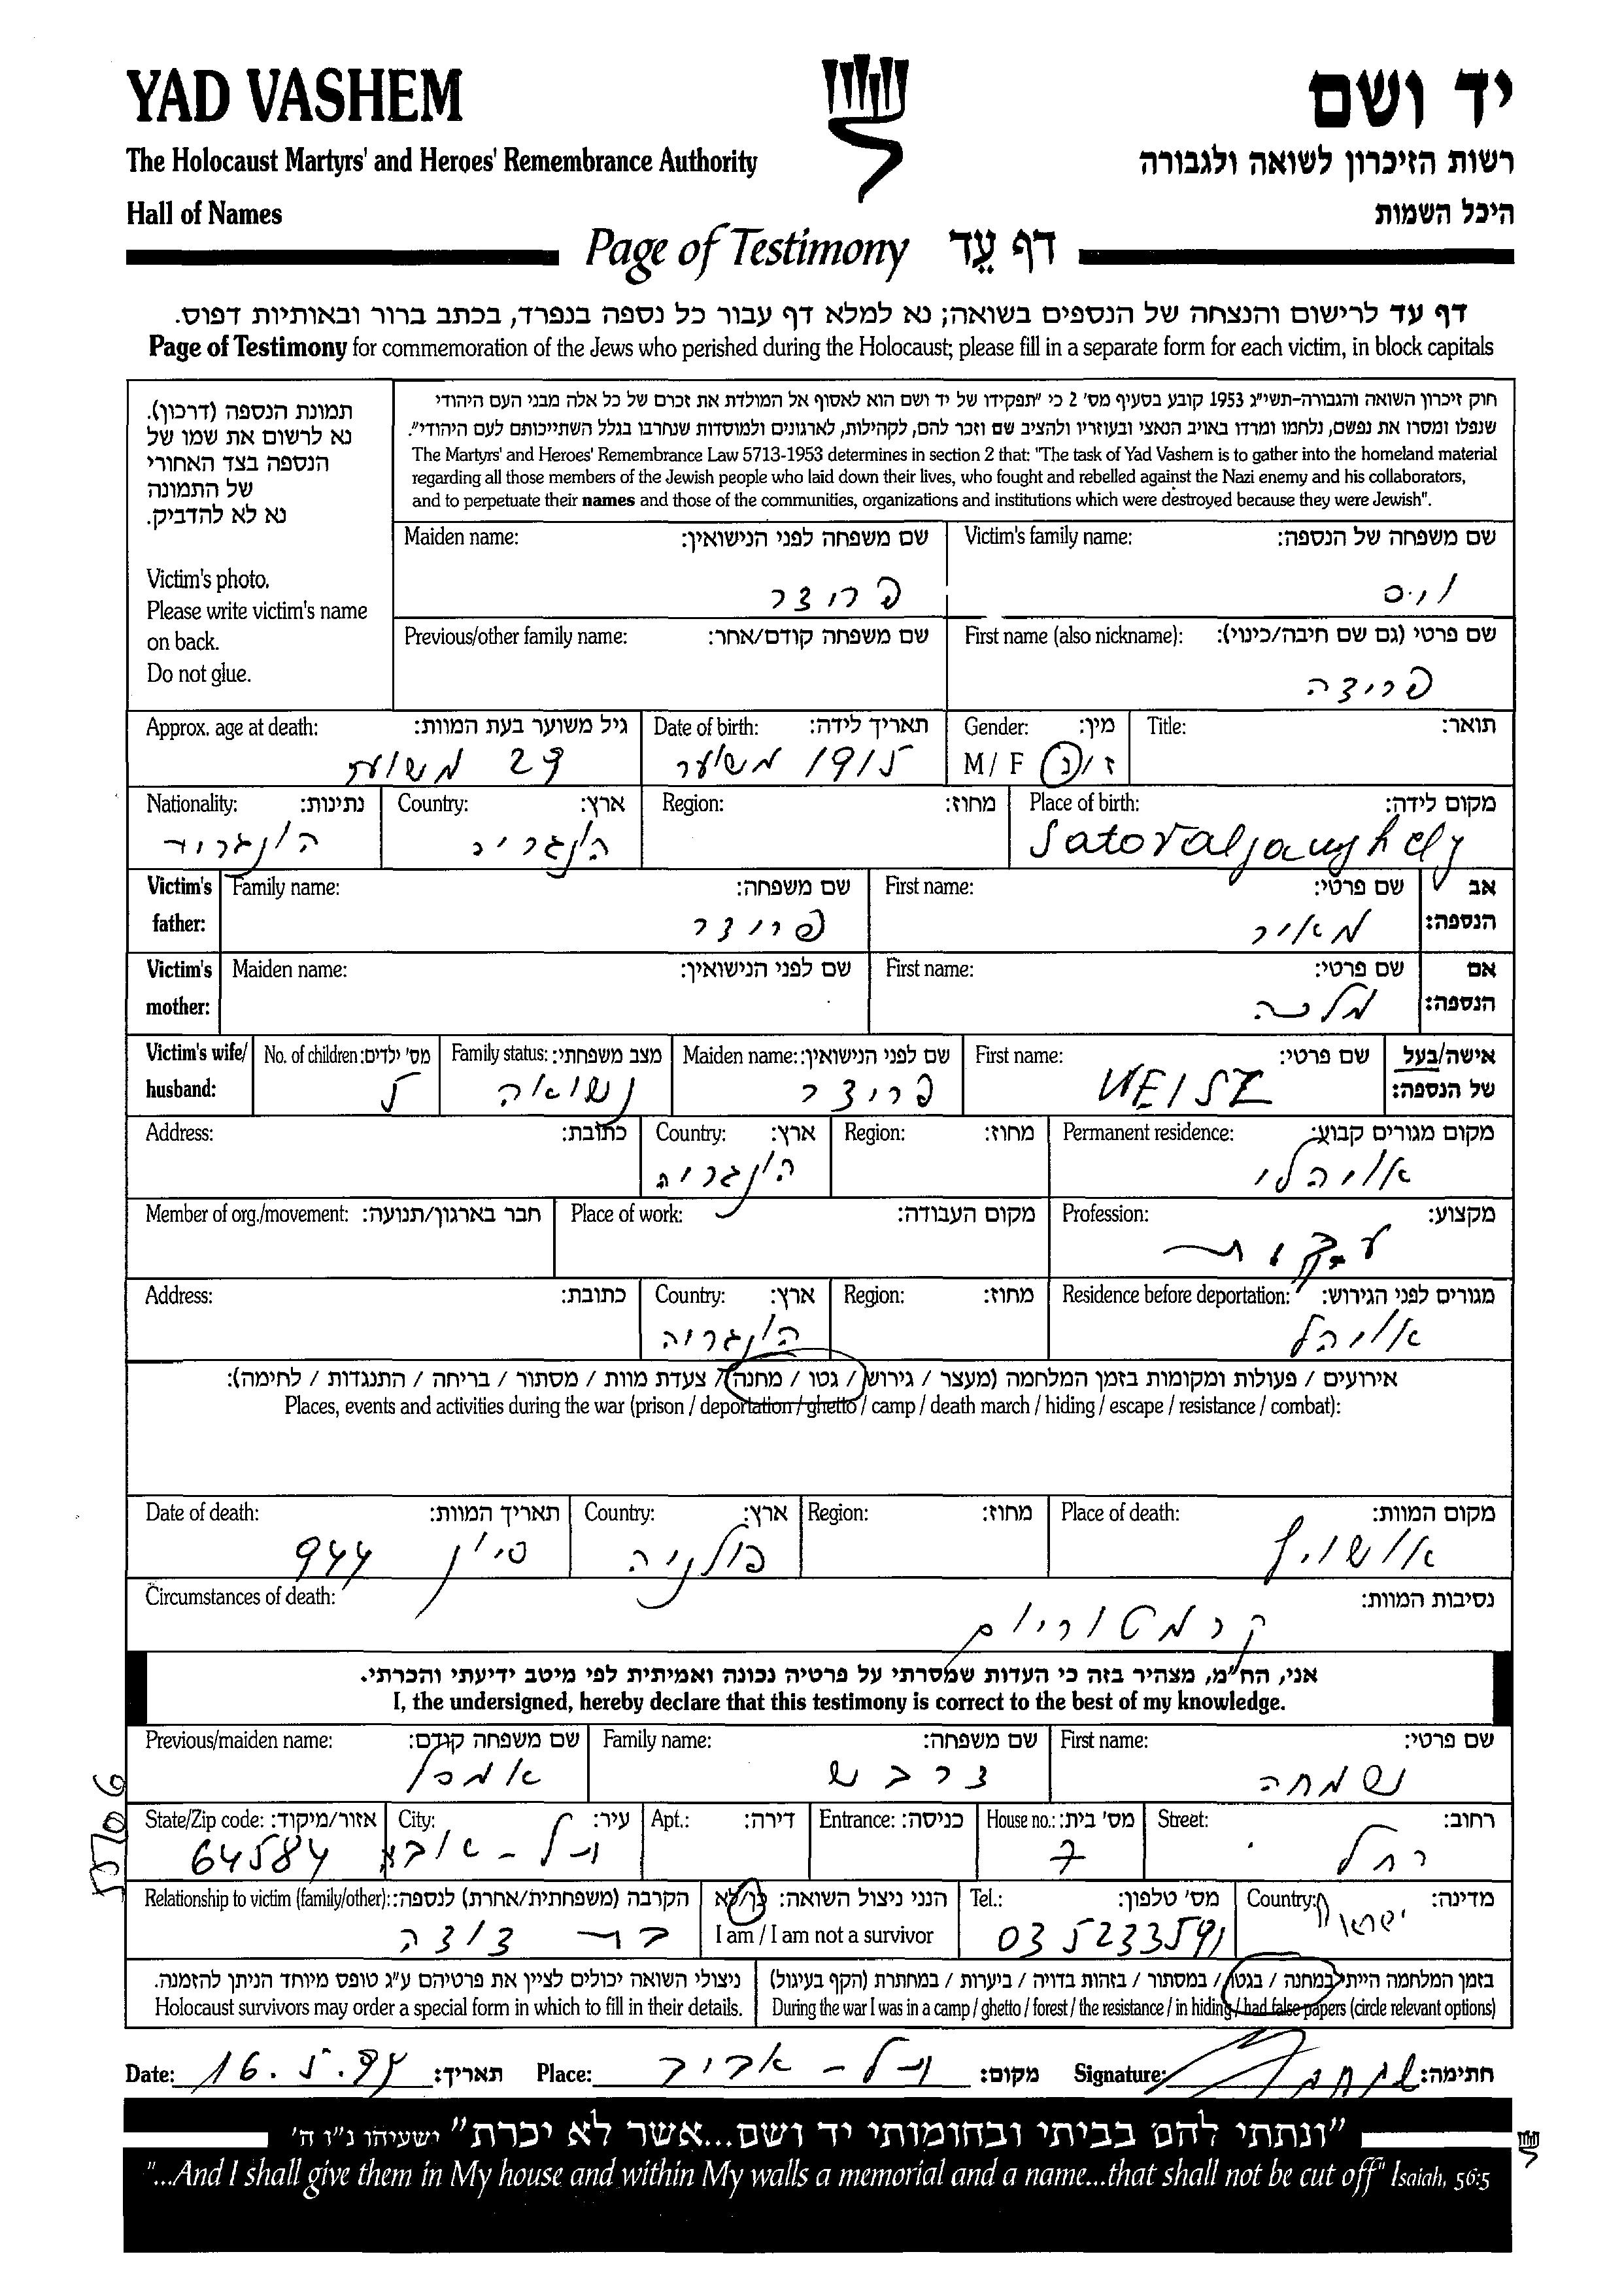 YAD VASHEM
יד ושם
The Holocaust Martyrs' and Heroes' Remembrance Authority
רשות הזיכרון לשואה ולגבורה
Hall of Names
היכל השמות
Page of Testimony דף עֵד
דף עד לרישום והנצחה של הנספים בשואה; נא למלא דף עבור כל נספה בנפרד, בכתב ברור ובאותיות דפוס.
Page of Testimony for commemoration of the Jews who perished during the Holocaust; please fill in a separate form for each victim, in block capitals
תמונת הנספה (דרכון).
נא לרשום את שמו של
הנספה בצד האחורי
של התמונה
נא לא להדביק.
Victim's photo.
Please write victim's name
on back.
Do not glue.
חוק זיכרון השואה והגבורה-תשי"ג 1953 קובע בסעיף מס' 2 כי "תפקידו של יד ושם הוא לאסוף אל המולדת את זכרם של כל אלה מבני העם היהודי
שנפלו ומסרו את נפשם, נלחמו ומרדו באויב הנאצי ובעוזריו ולהציב שם וזכר להם, לקהילות, לארגונים ולמוסדות שנחרבו בגלל השתייכותם לעם היהודי".
The Martyrs' and Heroes' Remembrance Law 5713-1953 determines in section 2 that: "The task of Yad Vashem is to gather into the homeland material
regarding all those members of the Jewish people who laid down their lives, who fought and rebelled against the Nazi enemy and his collaborators,
and to perpetuate their names and those of the communities, organizations and institutions which were destroyed because they were Jewish".
Victim's family name: שם משפחה של הנספה:
וייס
Maiden name: שם משפחה לפני הנישואין:
פרוצר
First name (also nickname): שם פרטי (גם שם חיבה/כינוי):
פריצה
Previous/other family name: שם משפחה קודם/אחר:
Title: תואר:
Gender: מין:
M / F ז / נ
Date of birth: תאריך לידה:
1915 משוער
Approx. age at death: גיל משוער בעת המוות:
29
Place of birth: מקום לידה:
Satoraljaughely
Region: מחוז:
Country: ארץ:
הונגריה
Nationality: נתינות:
הונגריה
Victim's father: אב הנספה:
First name: שם פרטי:
מאיר
Family name: שם משפחה:
פרוצר
Victim's mother: אם הנספה:
First name: שם פרטי:
מלכה
Maiden name: שם לפני הנישואין:
Victim's wife/ husband: אישה/בעל של הנספה:
First name: שם פרטי:
WEISZ
Maiden name: שם לפני הנישואין:
פריצר
Family status: מצב משפחתי:
נשואה
No. of children: מס' ילדים:
5
Permanent residence: מקום מגורים קבוע:
אויהלי
Region: מחוז:
Country: ארץ:
הונגריה
Address: כתובת:
Profession: מקצוע:
עקרת
Place of work: מקום העבודה:
Member of org./movement: חבר בארגון/תנועה:
Residence before deportation: מגורים לפני הגירוש:
אויהל
Region: מחוז:
Country: ארץ:
הונגריה
Address: כתובת:
אירועים / פעולות ומקומות בזמן המלחמה (מעצר / גירוש / גטו / מחנה / צעדת מוות / מסתור / בריחה / התנגדות / לחימה):
Places, events and activities during the war (prison / deportation / ghetto / camp / death march / hiding / escape / resistance / combat):
Place of death: מקום המוות:
אושויץ
Region: מחוז:
Country: ארץ:
פולניה
Date of death: תאריך המוות:
סיון 944
Circumstances of death: נסיבות המוות:
קרמטוריום
אני, הח"מ, מצהיר בזה כי העדות שמסרתי על פרטיה נכונה ואמיתית לפי מיטב ידיעתי והכרתי.
I, the undersigned, hereby declare that this testimony is correct to the best of my knowledge.
First name: שם פרטי:
שמחה
Family name: שם משפחה:
Previous/maiden name: שם משפחה קודם:
Street: רחוב:
רחל
House no.: מס' בית:
7
Entrance: כניסה:
Apt.: דירה:
City: עיר:
תל-אביב
State/Zip code: אזור/מיקוד:
64584
Country: מדינה:
ישראל
Tel.: מס' טלפון:
03 5233591
הנני ניצול השואה: כן/לא
I am / I am not a survivor
Relationship to victim (family/other): הקרבה (משפחתית/אחרת) לנספה:
בת
בזמן המלחמה הייתי במחנה / בגטו / במסתור / בזהות בדויה / ביערות / במחתרת (הקף בעיגול)
During the war I was in a camp / ghetto / forest / the resistance / in hiding / had false papers (circle relevant options)
ניצולי השואה יכולים לציין את פרטיהם ע"ג טופס מיוחד הניתן להזמנה.
Holocaust survivors may order a special form in which to fill in their details.
Date: 16.5.94 תאריך: Place: תל-אביב מקום: Signature: חתימה:
"ונתתי להם בביתי ובחומותי יד ושם...אשר לא יכרת" ישעיהו נ"ו ה'
"...And I shall give them in My house and within My walls a memorial and a name...that shall not be cut off" Isaiah, 56:5